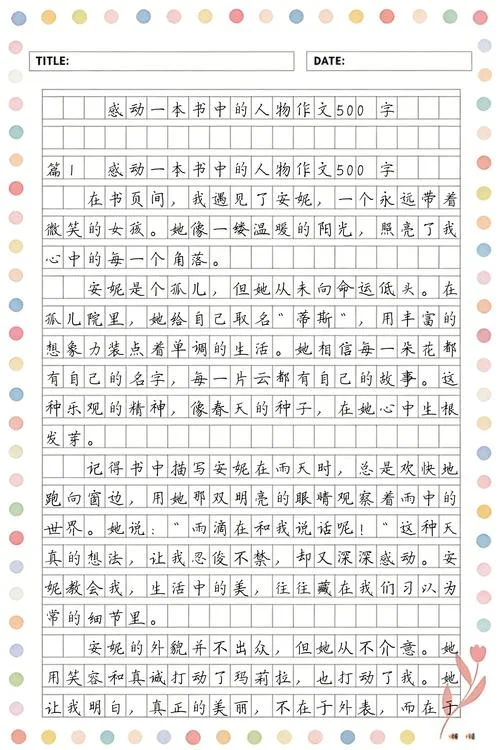 TITLE:
DATE:
感动一本书中的人物作文500 字
篇1 感动一本书中的人物作文500 字
在书页间，我遇见了安妮，一个永远带着
微笑的女孩。她像一缕温暖的阳光，照亮了我
心中的每一个角落。
安妮是个孤儿，但她从未向命运低头。在
孤儿院里，她给自己取名"蒂斯"，用丰富的
想象力装点着单调的生活。她相信每一朵花都
有自己的名字，每一片云都有自己的故事。这
种乐观的精神，像春天的种子，在她心中生根
发芽。
记得书中描写安妮在雨天时，总是欢快地
跑向窗边，用她那双明亮的眼睛观察着雨中的
世界。她说："雨滴在和我说话呢！"这种天
真的想法，让我忍俊不禁，却又深深感动。安
妮教会我，生活中的美，往往藏在我们习以为
常的细节里。
安妮的外貌并不出众，但她从不介意。她
用笑容和真诚打动了玛莉拉，也打动了我。她
让我明白，真正的美丽，不在于外表，而在于